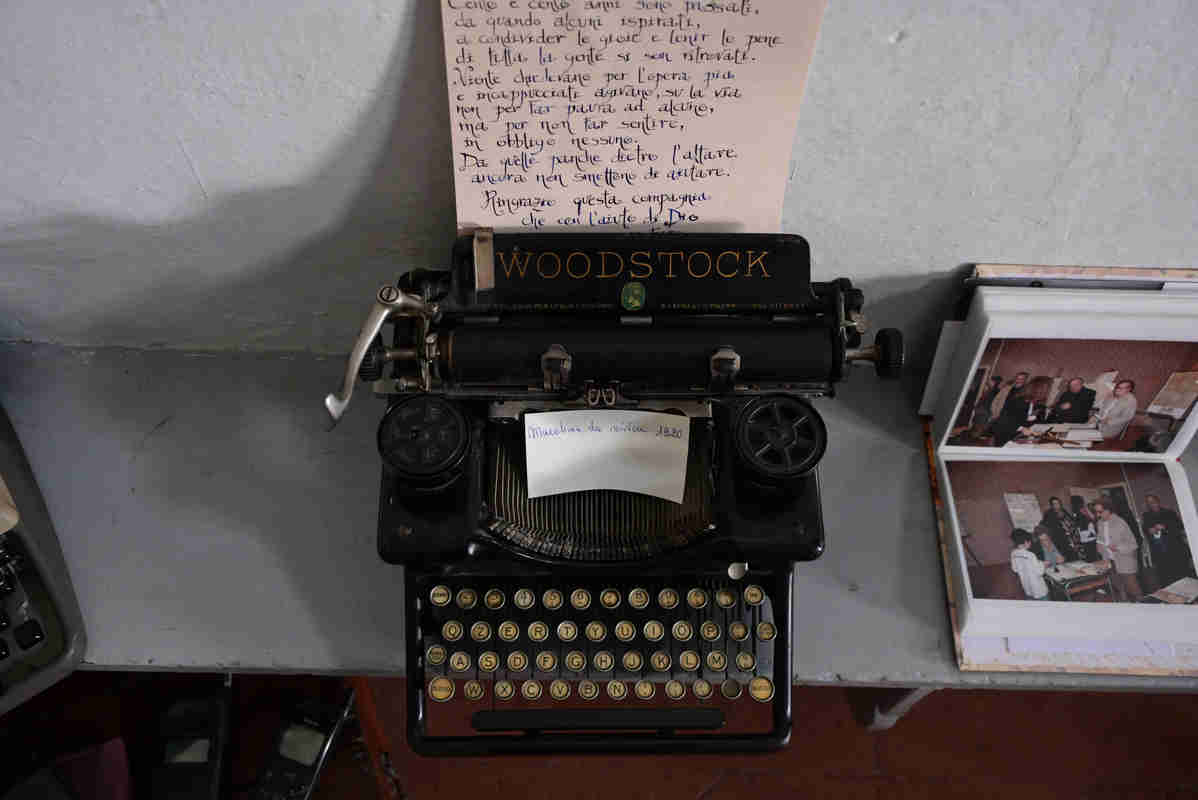 Cento e cento anni sono passati,
da quando alcuni ispirati,
a condivider le gioie e lenir le pene
di tutta la gente si son ritrovati.
Niente chiedevano per l'opera pia
e incappucciati agivano, su la via
non per far paura ad alcuno,
ma per non far sentire,
in obbligo nessuno.
Da quelle panche dietro l'altare
ancora non smettono di aiutare.
Ringrazio questa compagnia
che con l'aiuto di Dio
WOODSTOCK
1920
Q Z E R T Y U I O P
A S D F G H J K L M
W X C V B N